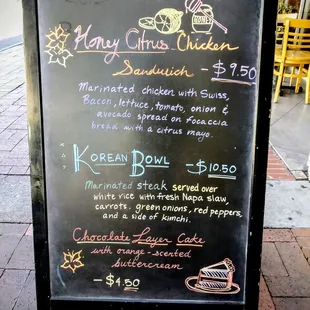 Honey Citrus Chicken
Sandwich - $9.50
Marinated chicken with Swiss,
Bacon, lettuce, tomato, onion &
avocado spread on focaccia
bread with a citrus mayo.
KOREAN BOWL - $10.50
Marinated steak served over
white rice with fresh Napa slaw,
carrots, green onions, red peppers,
and a side of kimchi.
Chocolate Layer Cake
with orange-scented
buttercream
- $4.50